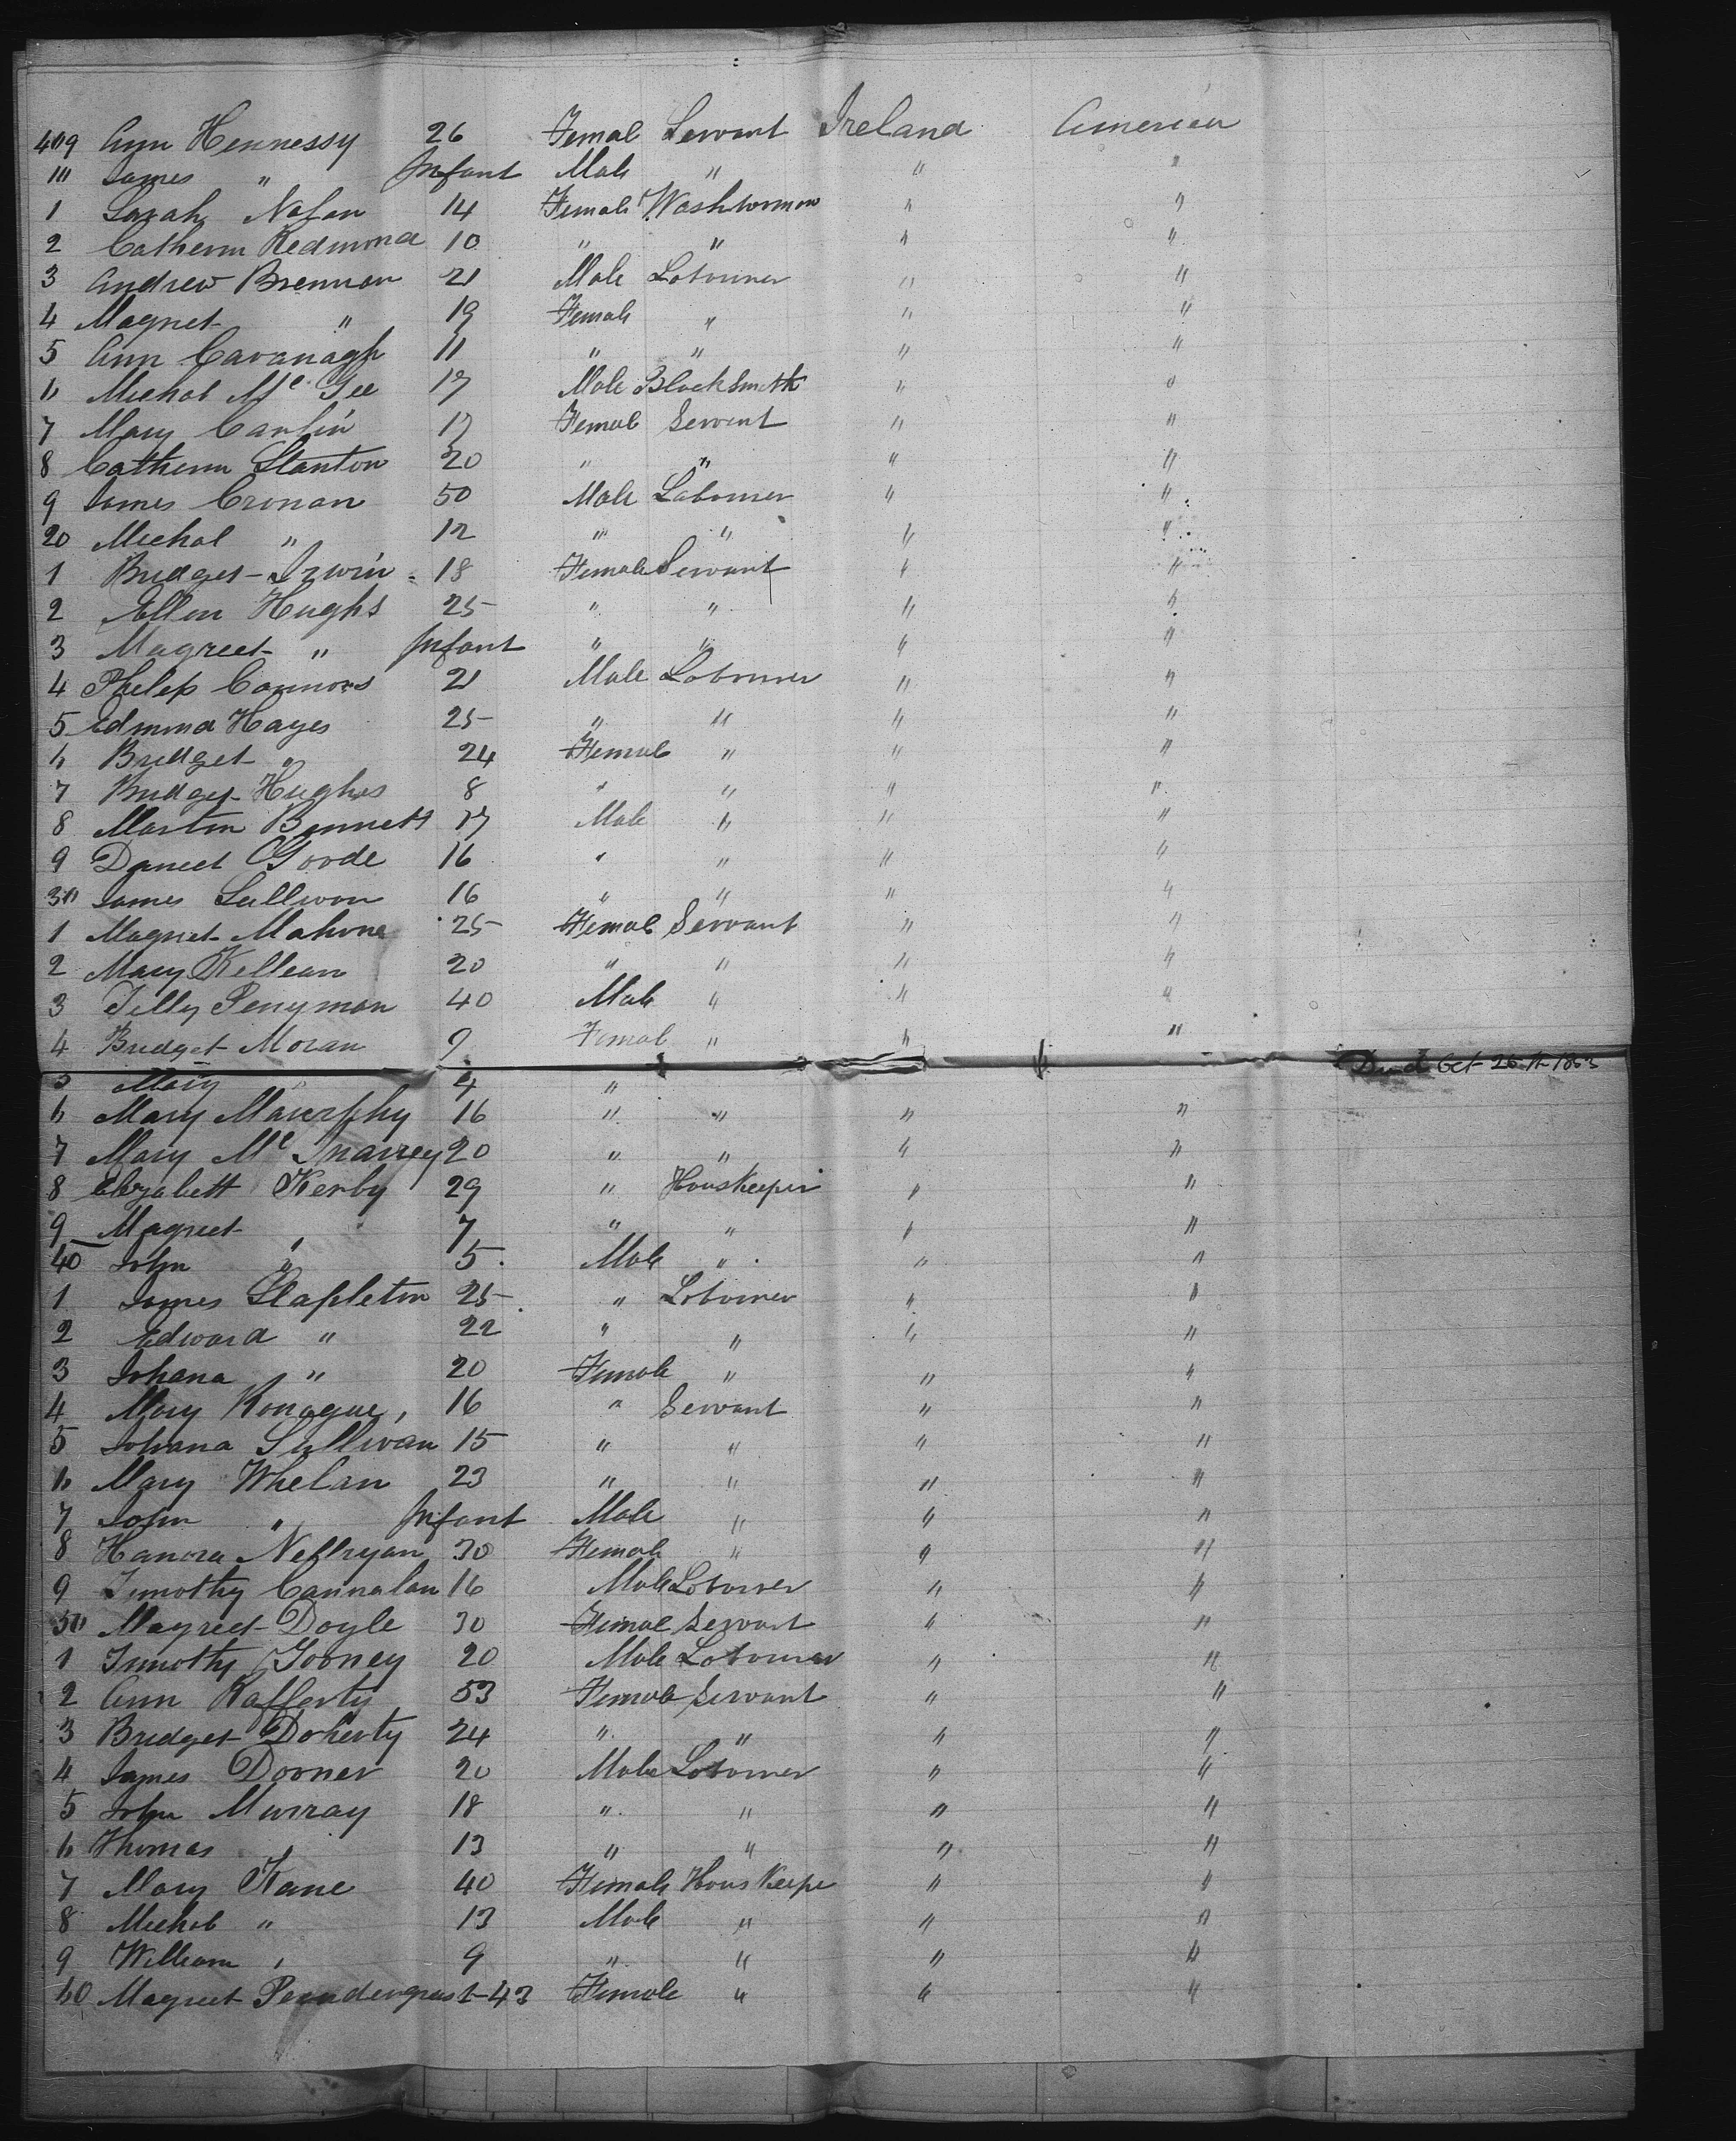 409 Ann Hennessy 26 Femal Servant Ireland America
10 James " Infant Male " " "
1 Sarah Nolan 14 Female Washwoman " "
2 Cathern Redmond 10 " " " "
3 Andrew Brennan 21 Male Labourer " "
4 Magret " 19 Female " " "
5 Ann Cavanagh 11 " " " "
6 Michal Mc Gee 17 Male Blacksmith " "
7 Mary Carlin 17 Femal Servent " "
8 Cathern Stanton 20 " " " "
9 James Cronan 50 Male Labourer " "
20 Michal " 12 " " " "
1 Bridget Irwin 18 Female Servant " "
2 Ellen Hughs 25 " " " "
3 Magreet " Infant " " " "
4 Philip Connors 21 Male Labourer " "
5 Edmund Hayes 25 " " " "
6 Bridget " 24 Femal " " "
7 Bridget Hughes 8 " " " "
8 Martin Bennett 17 Male " " "
9 Daniel Goode 16 " " " "
30 James Sullivan 16 " " " "
1 Magret Mahone 25 Femal Servant " "
2 Mary Killean 20 " " " "
3 Tilly Perryman 40 Male " " "
4 Bridget Moran 9 Femal " " "
5 Mary " 4 " " " " Died Oct 26th 1863
6 Mary Maurphy 16 " " " "
7 Mary Mc 20 " " " "
8 Elizabett Kerby 29 " Houskeeper " "
9 Magreet " 7 " " " "
40 John " 5 Male " " "
1 James Stapleton 25 " Labourer " "
2 Edward " 22 " " " "
3 Johana " 20 Female " " "
4 Mary Konague 16 " Servant " "
5 Johana Sullivan 15 " " " "
6 Mary Whelan 23 " " " "
7 John " Infant Male " " "
8 Hanora 30 Female " " "
9 Timothy Cannalan 16 Male Labourer " "
50 Magreet Doyle 30 Femal Servant " "
1 Timothy Gooney 20 Male Labourer " "
2 Ann Rafferty 53 Female Servant " "
3 Bridget Doherty 24 " " " "
4 James Dooner 20 Male Labourer " "
5 John Murray 18 " " " "
6 Thomas " 13 " " " "
7 Mary Kane 40 Female Hous Keepe " "
8 Michal " 13 Male " " "
9 William " 9 " " " "
60 Magreet Pendengrast 43 Female " " "